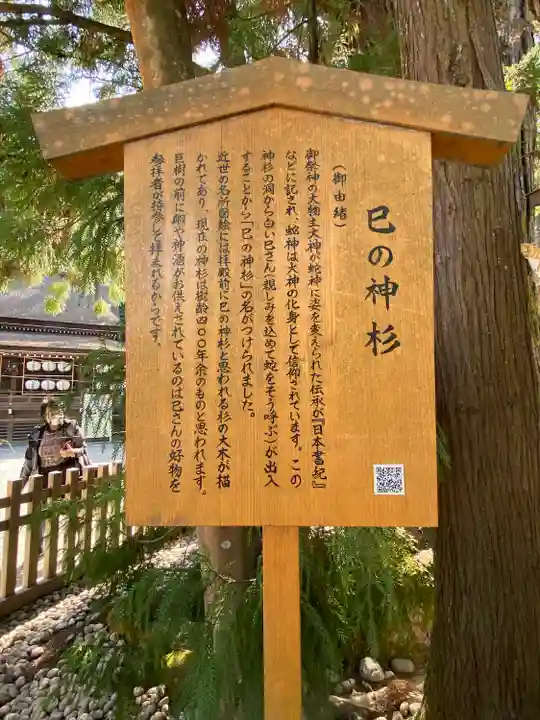 巳の神杉
（御由緒）
御祭神の大物主大神が蛇神に姿を変えられた伝承が『日本書紀』
などに記され、蛇神は大神の化身として信仰されています。この
神杉の洞から白い巳さん（親しみを込めて蛇をそう呼ぶ）が出入
することから「巳の神杉」の名がつけられました。
近世の名所図絵には拝殿前に巳の神杉と思われる杉の大木が描
かれており、現在の神杉は樹齢四〇〇年余のものと思われます。
巨樹の前に卵や神酒がお供えされているのは巳さんの好物を
参拝者が持参して拝まれるからです。